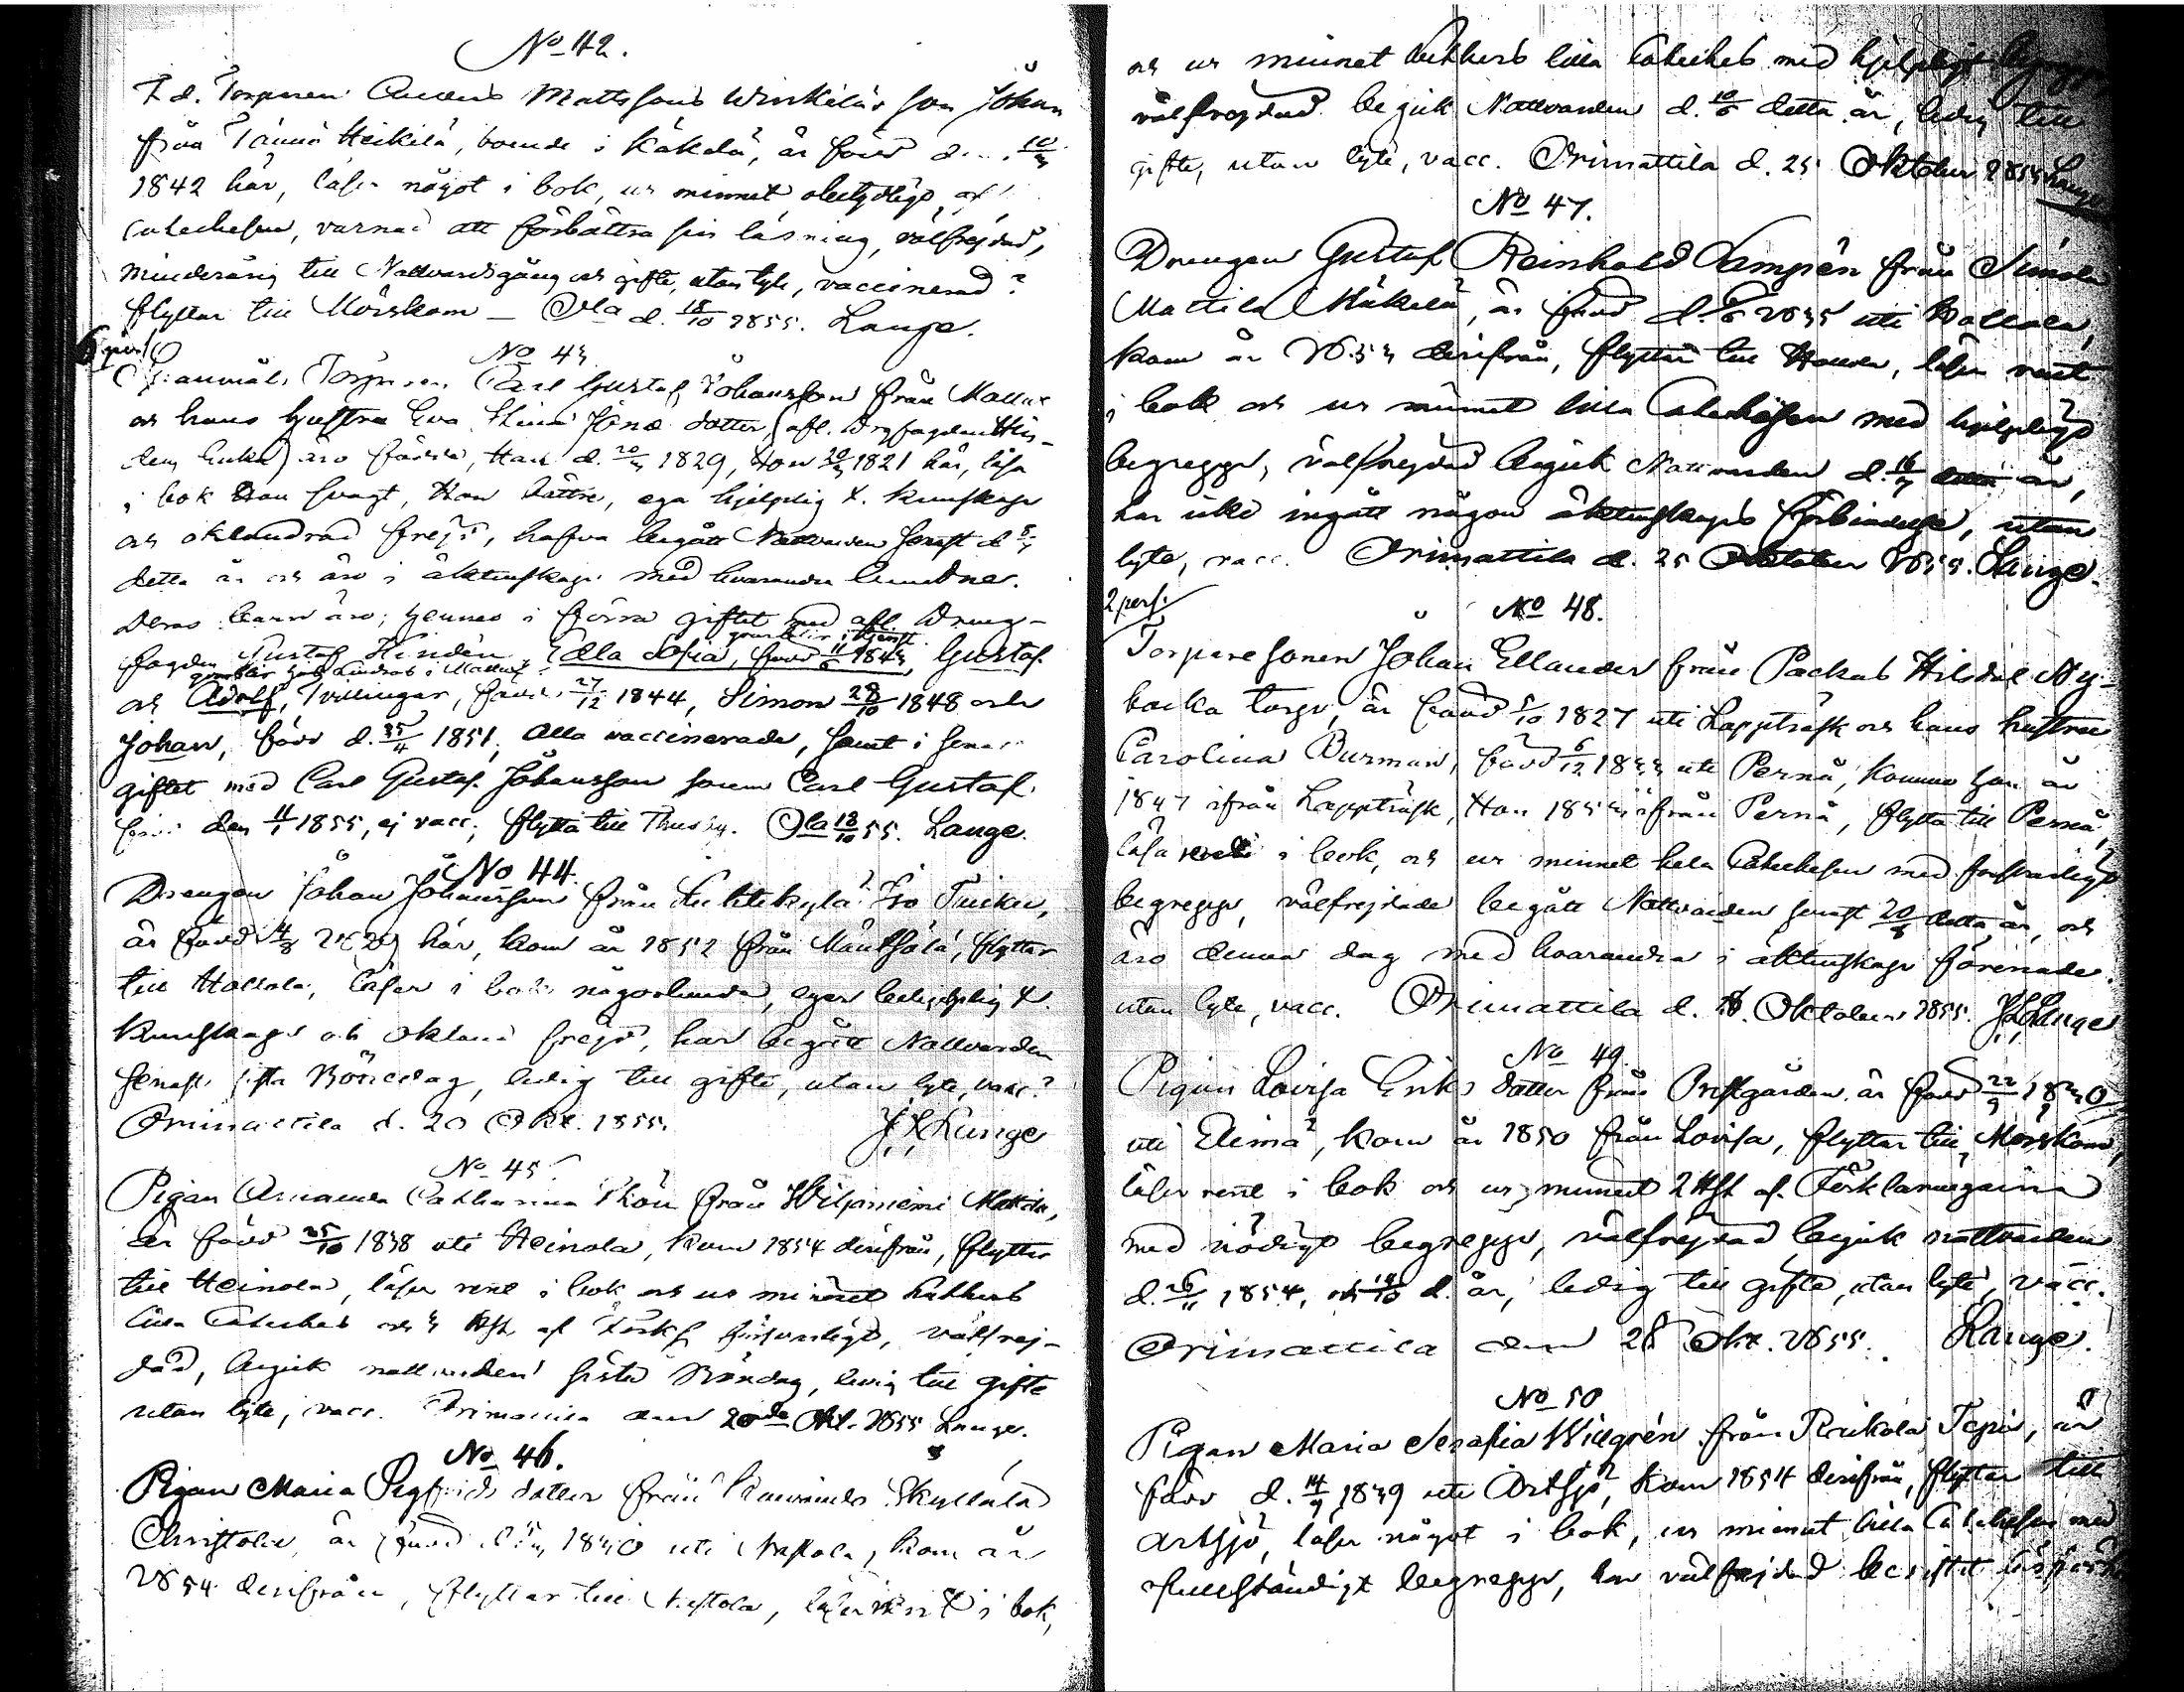 No 42.
F. d. Torparen Anders Mattsons Winkilär son Johan
från Tännö Heikilä, boende i Käkelä, är född d. 10/3
1842 här, läser något i bok, ur minnet obetydligt af
Catechesen, varnad att förbättra sin läsning, välfrejdad,
minderårig till Nattvardsgång och gifte, utan lyte, vaccinerad?
flyttar till Mörskom — Ola d. 18/10 1855. Lange.
6 pers.
No 43
Torparen Carl Gustaf Johansson från Mallus
och hans hustru Eva Stina Jöns dotter,
den Enka) äro födde, Han d. 20/3 1829, Hon 1821 här, läsa
i bok Han svagt, Hon bättre, ega hjelplig X. kunskap
och oklandrad frejd, hafva begått Nattvarden senast d.
detta år och äro i äktenskap med hvarandra bundne.
Deras barn äro; hennes i förra giftet med afl. Dreng-
fogden Gustaf Hindén Ulla Sofia, född 11/6 1843, Gustaf
qvarblir i tjenst
och Adolf, Tvillingar, födde 27/12 1844, Simon 28/10 1848 och
Johan, född d. 25/4 1851, alla vaccinerade, samt i senare
giftet med Carl Gustaf Johansson sonen Carl Gustaf
född den 11/1 1855, ej vacc; flytta till Thusby. Ola 18/10 55. Lange.
No 44.
Drengen Johan Johansson från Luhtikylä Iso Tuikku,
är född 4/8 1829 här, kom år 1852 från Mäntsälä, flyttar
till Hollola, läser i bok någorlunda, eger behjelplig X.
kunskap och okland frejd, har begått Nattvarden
senast sista Böndag, ledig till gifte, utan lyte, vacc?
Orimattila d. 20 Okt. 1855. J. L. Lange
No 45
Pigan Amanda Catharina Thön från Wiljaniemi Mattila,
är född 25/10 1838 uti Heinola, kom 1854 derifrån, flyttar
till Heinola, läser rent i bok och ur minnet Lutherb
lilla Catechés och 3 Hst. af Förkl. försvarligt, välfrej-
dad, begick nattvarden sista Böndag, ledig till gifte
utan lyte, vacc. Orimattila den 20de Okt. 1855 Lange.
No 46.
Pigan Maria Sigfrids dotter från Skyttälä
Christola, är född 1840 uti Nastola, kom år
1854 derifrån, flyttar till Nastola, läser rent i bok,
och ur minnet Lutherb lilla Catechés med hjelpligt begrepp,
välfrejdad begick Nattvarden d. 10/6 detta år, ledig till
gifte, utan lyte, vacc. Orimattila d. 25 Oktober 1855 Lange
No 47.
Drengen Gustaf Reinhold Lampén från Simola
Mattila Mäkelä, är född d. 1835 uti Kollola,
kom år 1853 derifrån, flyttar till, läser rent
i bok och ur minnet lilla Catechesen med hjelpligt
begrepp, välfrejdad begick Nattvarden d. 16/9 detta år,
har icke ingått någon äktenskaps förbindelse, utan
lyte, vacc. Orimattila d. 25 Oktober 1855. Lange.
2 pers.
No 48.
Torparesonen Johan Ellander från Packab Hilsdal Ny-
backa torp, är född 5/10 1827 uti Lappträsk och hans hustru
Carolina Burman, född 6/12 1833 uti Pernå, komne han år
1847 ifrån Lappträsk, Hon 1853 ifrån Pernå, flytta till Pernå,
läsa i bok, och ur minnet hela Catechesen med försvarligt
begrepp, välfrejdade begått Nattvarden senast 20/5 detta år, och
äro denna dag med hvarandra i äktenskap förenade.
utan lyte, vacc. Orimattila d. 28. Oktober 1855. J. L. Lange
No 49.
Pigan Lovisa Eriks dotter från Prestgården är född 22/9 1830
uti Elimä, kom år 1850 från Lovisa, flyttar till Mörskom,
läser rent i bok och ur minnet 2 Hst af Förklaringarna
med nödigt begrepp, välfrejdad begick nattvarden
d. 26/11 1854, och 14/10 d. år, ledig till gifte, utan lyte, vacc.
Orimattila den 28 Okt. 1855. Lange.
No 50
Pigan Maria Serafia Willgrén från Ruikola Tepio, är
född d. 14/9 1839 uti Artsjö, kom 1854 derifrån, flyttar till
Artsjö, läser något i bok, ur minnet lilla Catechesen med
ofullständigt begrepp, har välfrejdad bevistat